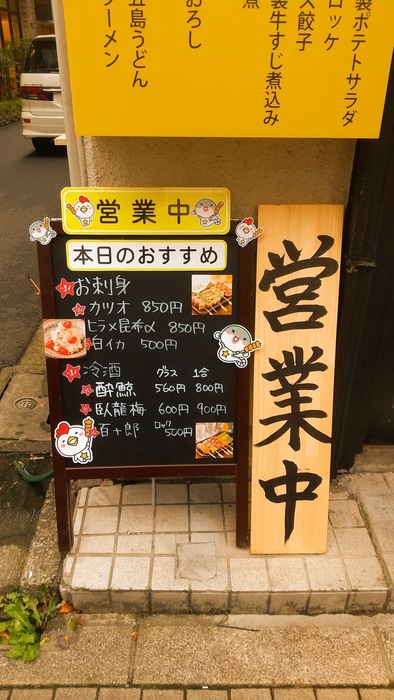 製ポテトサラダ
ロッケ
ス餃子
製牛すじ煮込み
煮
おろし
五島うどん
ラーメン
営業中
本日のおすすめ
お刺身
カツオ 850円
ヒラメ昆布〆 850円
白イカ 500円
冷酒 グラス 1合
酔鯨 560円 800円
臥龍梅 600円 900円
百十郎 ロック 500円
営業中